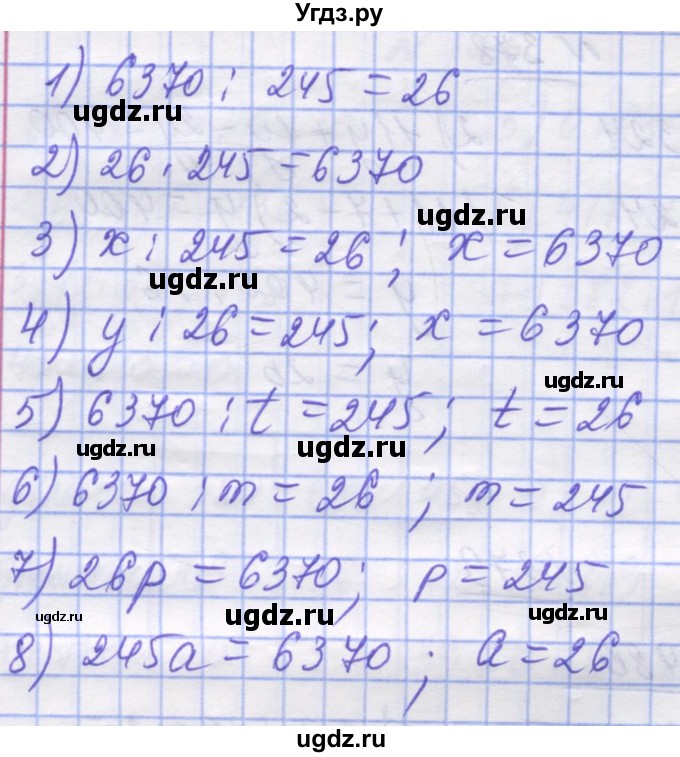 Угдз.ру
1) 6370 : 245 = 26
ugdz.ru
2) 26 · 245 = 6370
ugdz.ru
3) x : 245 = 26 ; x = 6370
ugdz.ru
4) y : 26 = 245 ; x = 6370
ugdz.ru
5) 6370 : t = 245 ; t = 26
ugdz.ru ugdz.ru
6) 6370 : m = 26 ; m = 245
7) 26p = 6370 ; p = 245
ugdz.ru ugdz.ru ugdz.ru
8) 245a = 6370 ; a = 26
ugdz.ru
ugdz.ru